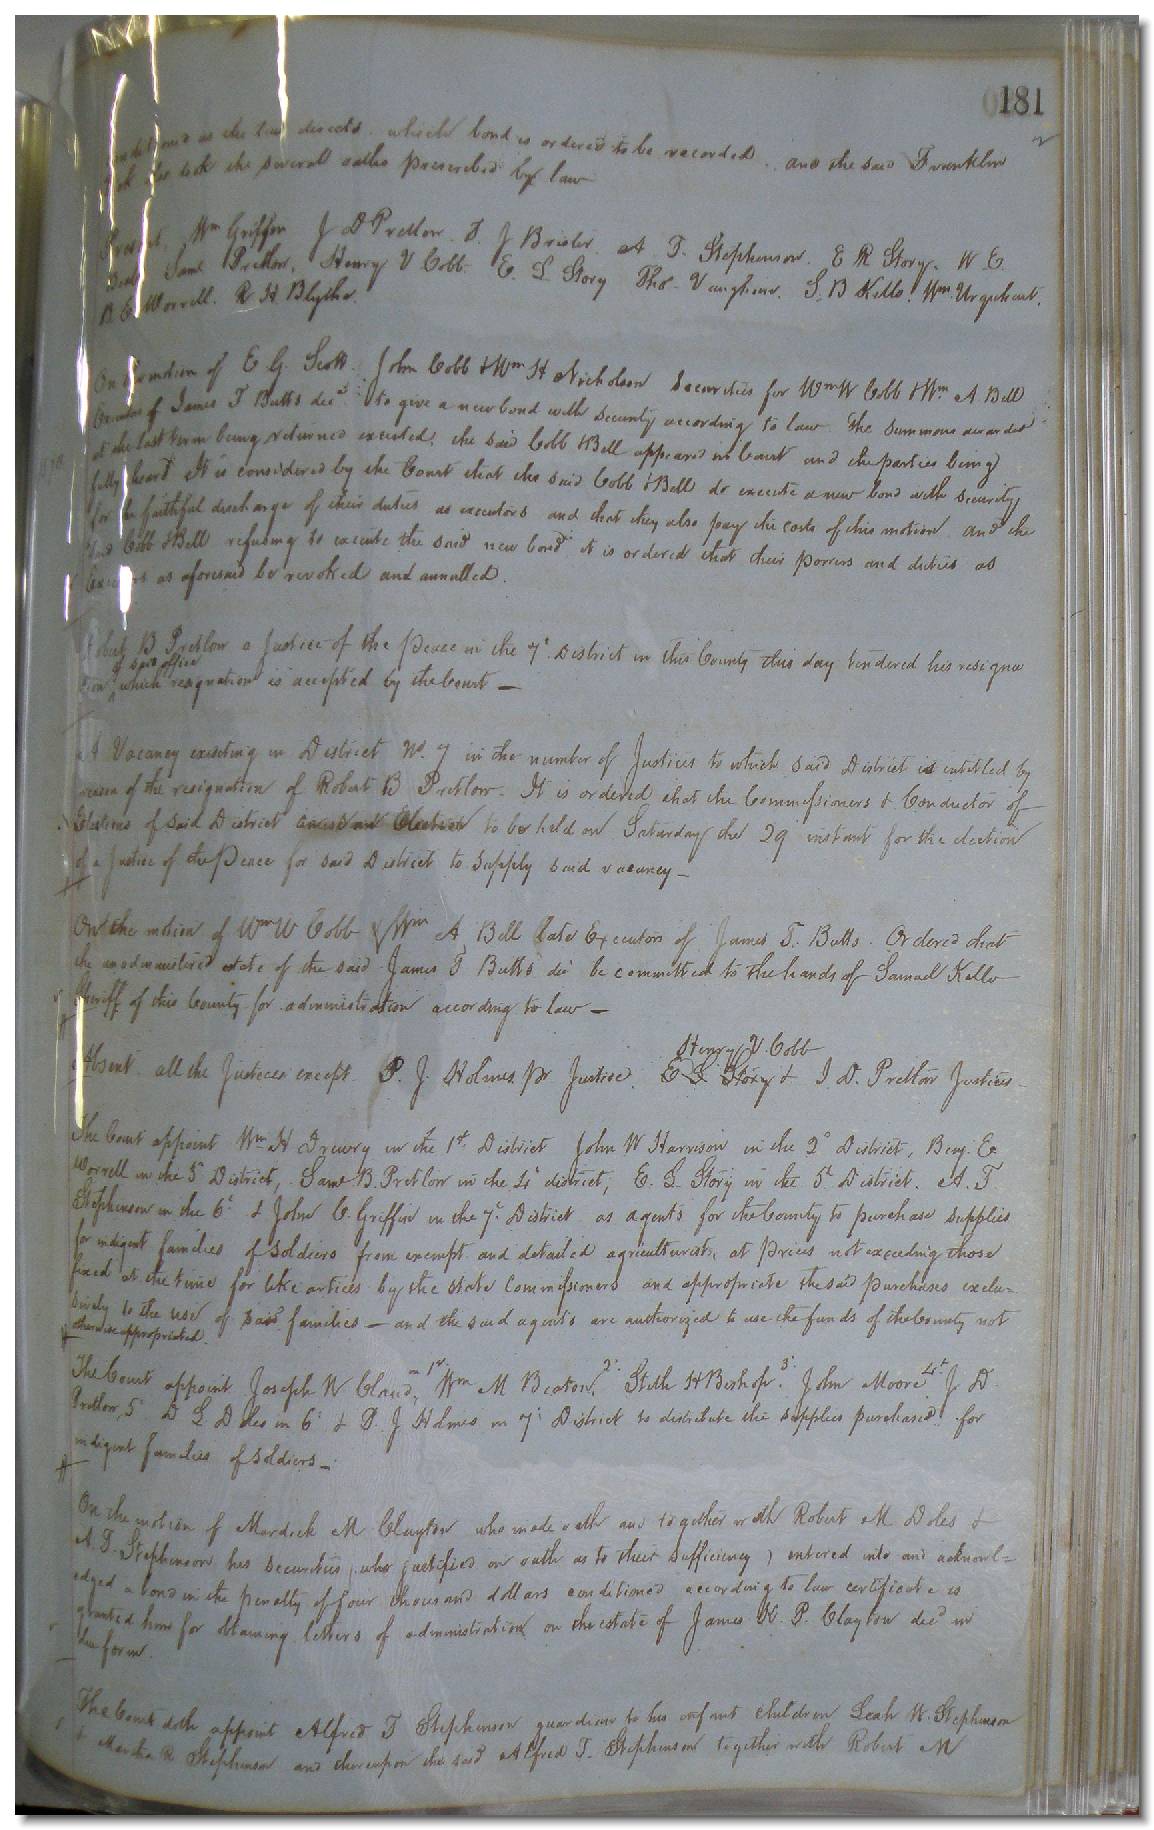 181
as the law directs. which bond is ordered to be recorded. and the said Franklin
took the several oaths prescribed by law
Present. Wm Griffin J D Pretlow. T. J Brister. A T. Stephenson. E R Story. W E.
Saml Pretlow. Henry V Cobb. E. L Story Tho. Vaughan. S. B Kello. Wm Urquhart.
B E Worrell. R H Blythe.
On the motion of E G. Scott. John Cobb & Wm H Nicholson Securities for Wm W Cobb & Wm A Bell
Executors of James T Butts decd. to give a new bond with security according to law The summons awarded
at the last term being returned executed. the said Cobb & Bell appeared in Court and the parties being
fully heard It is considered by the Court that the said Cobb & Bell do execute a new bond with security
for the faithful discharge of their duties as executors and that they also pay the costs of this motion and the
said Cobb & Bell refusing to execute the said new bond it is ordered that their powers and duties as
Executors as aforesaid be revoked and annulled.
Robert B Pretlow a Justice of the Peace in the 7th District in this County this day tendered his resigna
of said office
tion which resignation is accepted by the Court —
A Vacancy existing in District No. 7 in the number of Justices to which said District is entitled by
reason of the resignation of Robert B Pretlow. It is ordered that the Commissioners & Conductor of
Elections of said District Election to be held on Saturday the 29 instant for the election
of a Justice of the Peace for said District to supply said vacancy —
On the motion of Wm W Cobb & Wm A Bell late Executors of James T. Butts. Ordered that
the unadministered estate of the said James T Butts decd be committed to the hands of Samuel Kello
Sheriff of this County for administration according to law —
Henry V. Cobb
Absent all the Justices except P. J. Holmes pr Justice. E L Story & J. D. Pretlow Justices —
The Court appoint Wm H Drewry in the 1st District John W Harrison in the 2d District, Benj. E
Worrell in the 3d District, Saml B. Pretlow in the 4th district, E. L. Story in the 5th District. A. T.
Stephenson in the 6th & John C. Griffin in the 7th District as agents for the County to purchase supplies
for indigent families of soldiers from exempt and detailed agriculturists, at prices not exceeding those
fixed at the time for like articles by the State Commissioners and appropriate the said purchases exclu-
sively to the use of said families — and the said agents are authorized to use the funds of the County not
otherwise appropriated.
The Court appoint Joseph W Claud, 1st. Wm M Beaton, 2d. Stith H Bishop. 3d. John Moore 4th. J. D
Pretlow, 5th D L Doles in 6th & P. J Holmes in 7th District to distribute the supplies purchased for
indigent families of soldiers —
On the motion of Murdock M Clayton who made oath and together with Robert M Doles &
A. T. Stephenson his securities (who justified on oath as to their sufficiency) entered into and acknowl=
edged a bond in the penalty of four thousand dollars conditioned according to law certificate is
granted him for obtaining letters of administration on the estate of James N. P. Clayton decd in
due form.
The Court doth appoint Alfred T Stephenson guardian to his infant children Leah W. Stephenson
& Martha R Stephenson and thereupon the said Alfred T. Stephenson together with Robert M